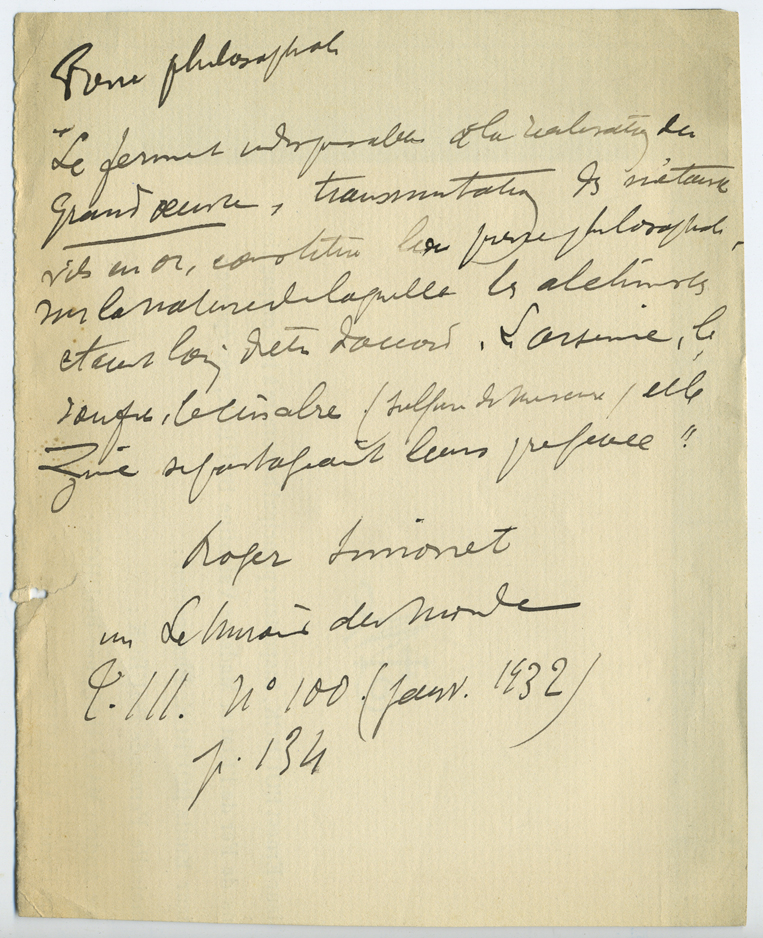 Pierre philosophale
"Le ferment indispensable à la réalisation du
Grand œuvre, transmutation des métaux
vils en or, constitue la pierre philosophale,
sur la nature de laquelle les alchimistes
étaient loin d'être d'accord. L'arsenic, le
soufre, le cinabre (sulfure de mercure) et le
Zinc se partageaient leurs préférences"
Roger Simonet
in Le Miroir du Monde
T. III. N° 100 (janv. 1932)
p. 134